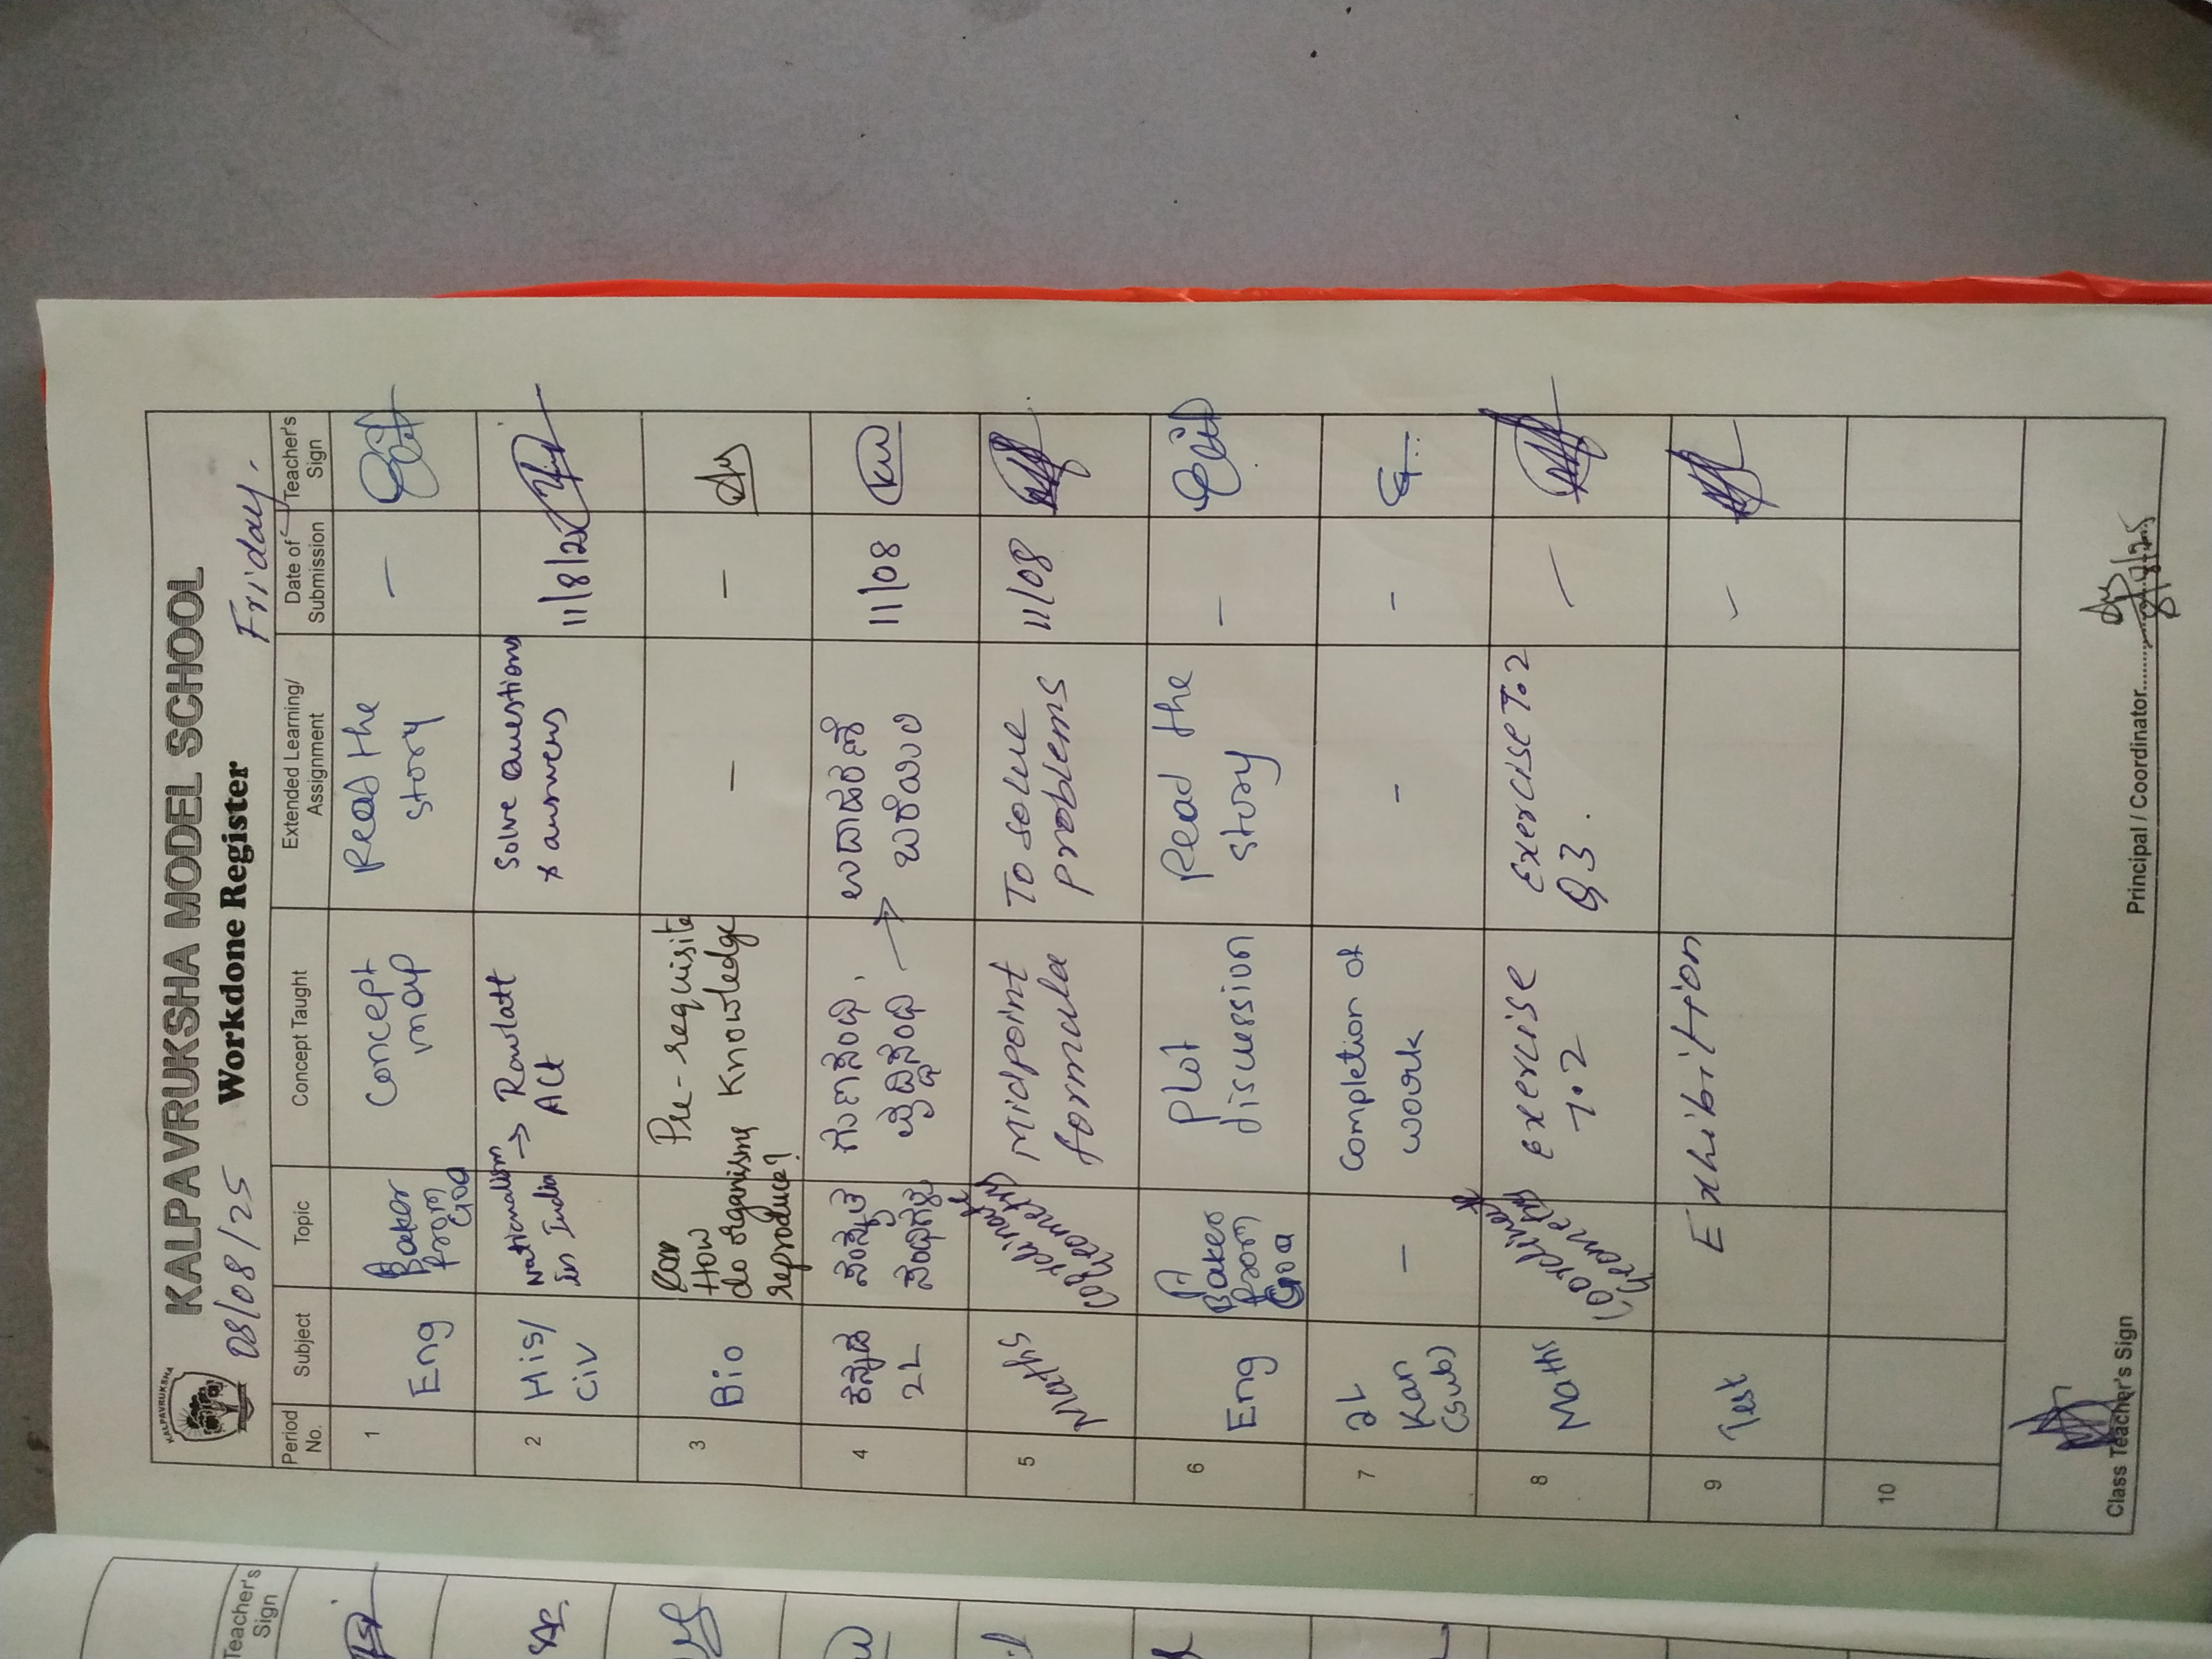 KALPAVRUKSHA
KALPAVRUKSHA MODEL SCHOOL
08/08/25 Workdone Register Friday.
Period No. Subject Topic Concept Taught Extended Learning/ Assignment Date of Submission Teacher's Sign
1 Eng Baker from Goa Concept map Read the story –
2 His/ Civ Nationalism in India → Rowlatt Act Solve Questions & answers 11/8/25
3 Bio How do organisms reproduce? Pre-requisite Knowledge – –
4 ಕನ್ನಡ 2L ಸಂಸ್ಕೃತ ಸಂಧಿಗಳು ಗುಣಸಂಧಿ, ವೃದ್ಧಿಸಂಧಿ → ಉದಾಹರಣೆ ಬರೆಯಿರಿ 11/08
5 Maths Coordinate Geometry Midpoint formula To solve problems 11/08
6 Eng A Baker from Goa Plot discussion Read the story –
7 2L Kan (sub) – Completion of work – –
8 Maths Coordinate Geometry exercise 7.2 Exercise 7.2 Q3. –
9 Test Exhibition –
10
Class Teacher's Sign Principal / Coordinator 8/8/25
Teacher's Sign